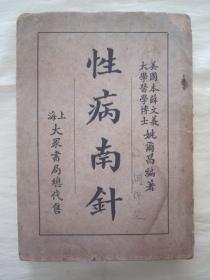 美國本薛文義
大學醫學博士
姚爾昌編著
性病南針
上海
大眾書局總代售